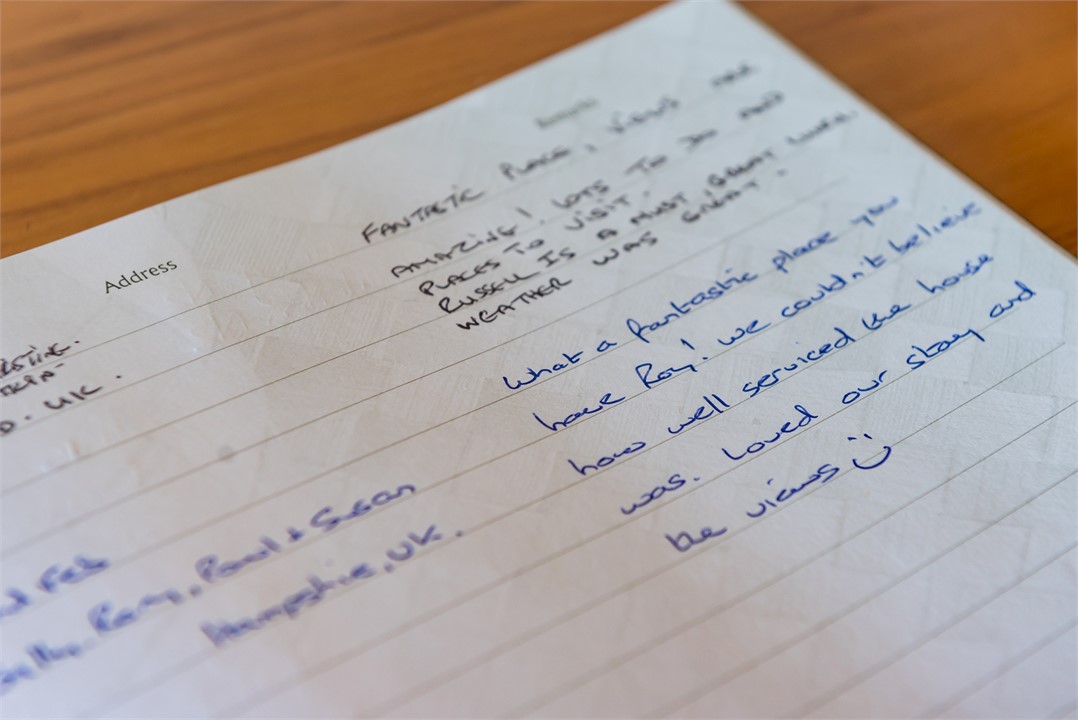 Address
FANTASTIC PLACE, VIEWS ARE
AMAZING! LOTS TO DO AND
PLACES TO VISIT.
RUSSELL IS A MUST, GREAT LUNCH.
WEATHER WAS GREAT.
D. UK.
What a fantastic place you
have Ray! we couldn't believe
how well serviced the house
was. Loved our stay and
the views
Feb
Ray, Paul & Susan
Hampshire, UK.